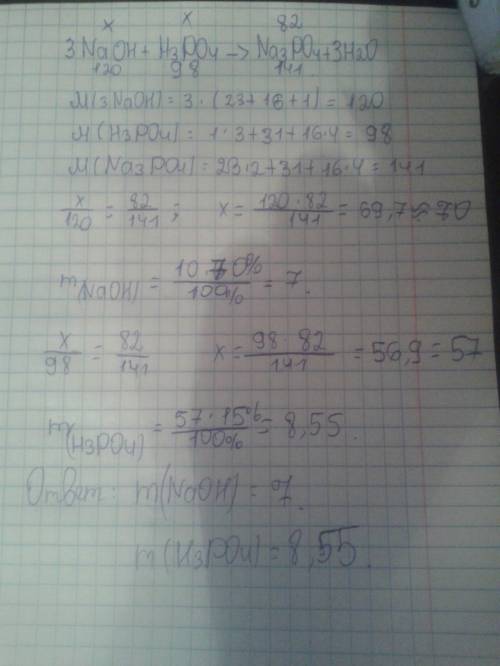 x x 82
3NaOH + H3PO4 -> Na3PO4 + 3H2O
120 98 141
M(3NaOH) = 3 · (23 + 16 + 1) = 120
M(H3PO4) = 1 · 3 + 31 + 16 · 4 = 98
M(Na3PO4) = 23 · 2 + 31 + 16 · 4 = 141
x/120 = 82/141 ; x = 120 · 82/141 = 69,7 ≈ 70
m(NaOH) = 10 · 70%/100% = 7.
x/98 = 82/141 x = 98 · 82/141 = 56,9 = 57
m(H3PO4) = 57 · 15%/100% = 8,55.
Ответ: m(NaOH) = 7.
m(H3PO4) = 8,55.